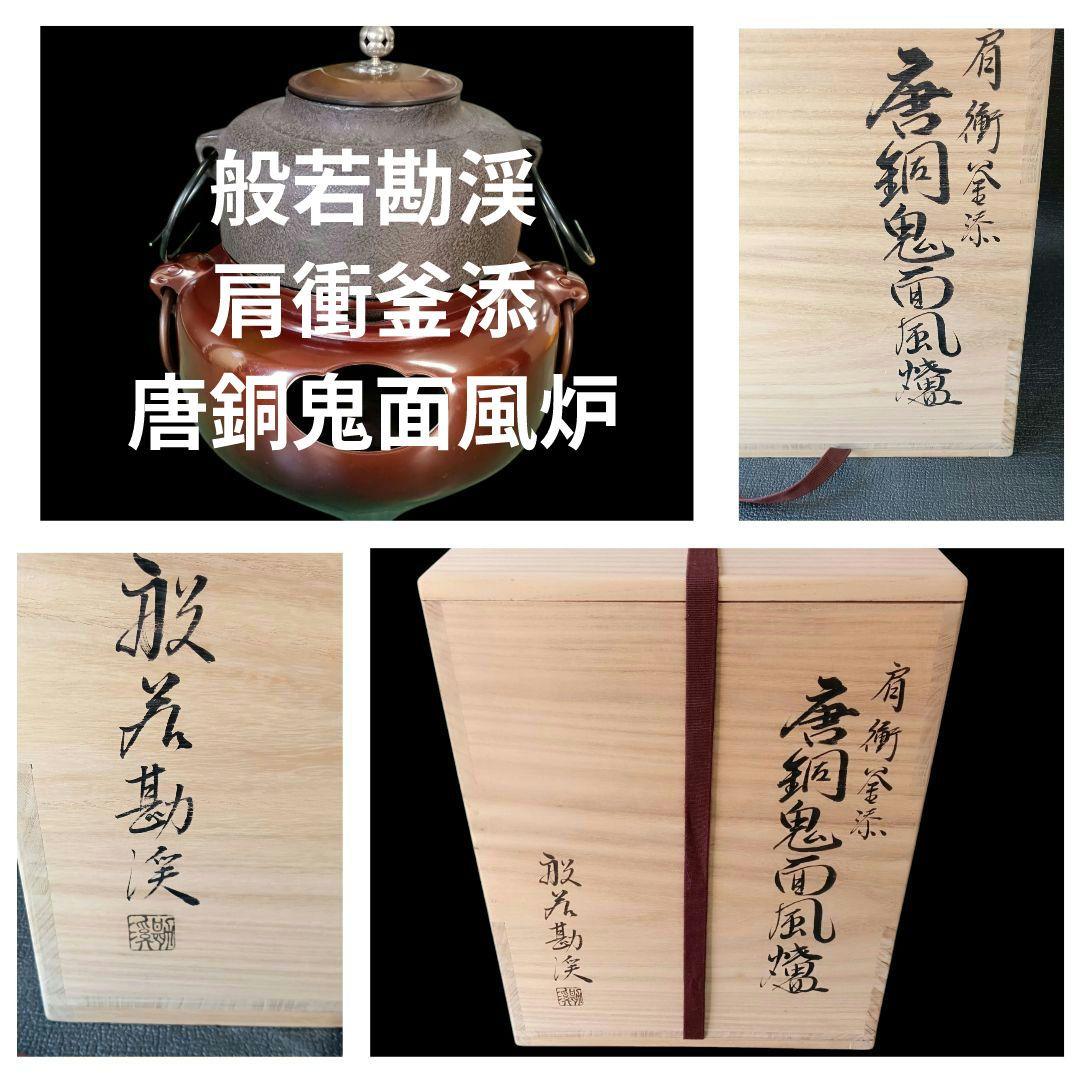 般若勘渓
肩衝釜添
唐銅鬼面風炉
肩衝釜添
唐銅鬼面風爐
般若勘渓
勘渓
肩衝釜添
唐銅鬼面風爐
般若勘渓
勘渓